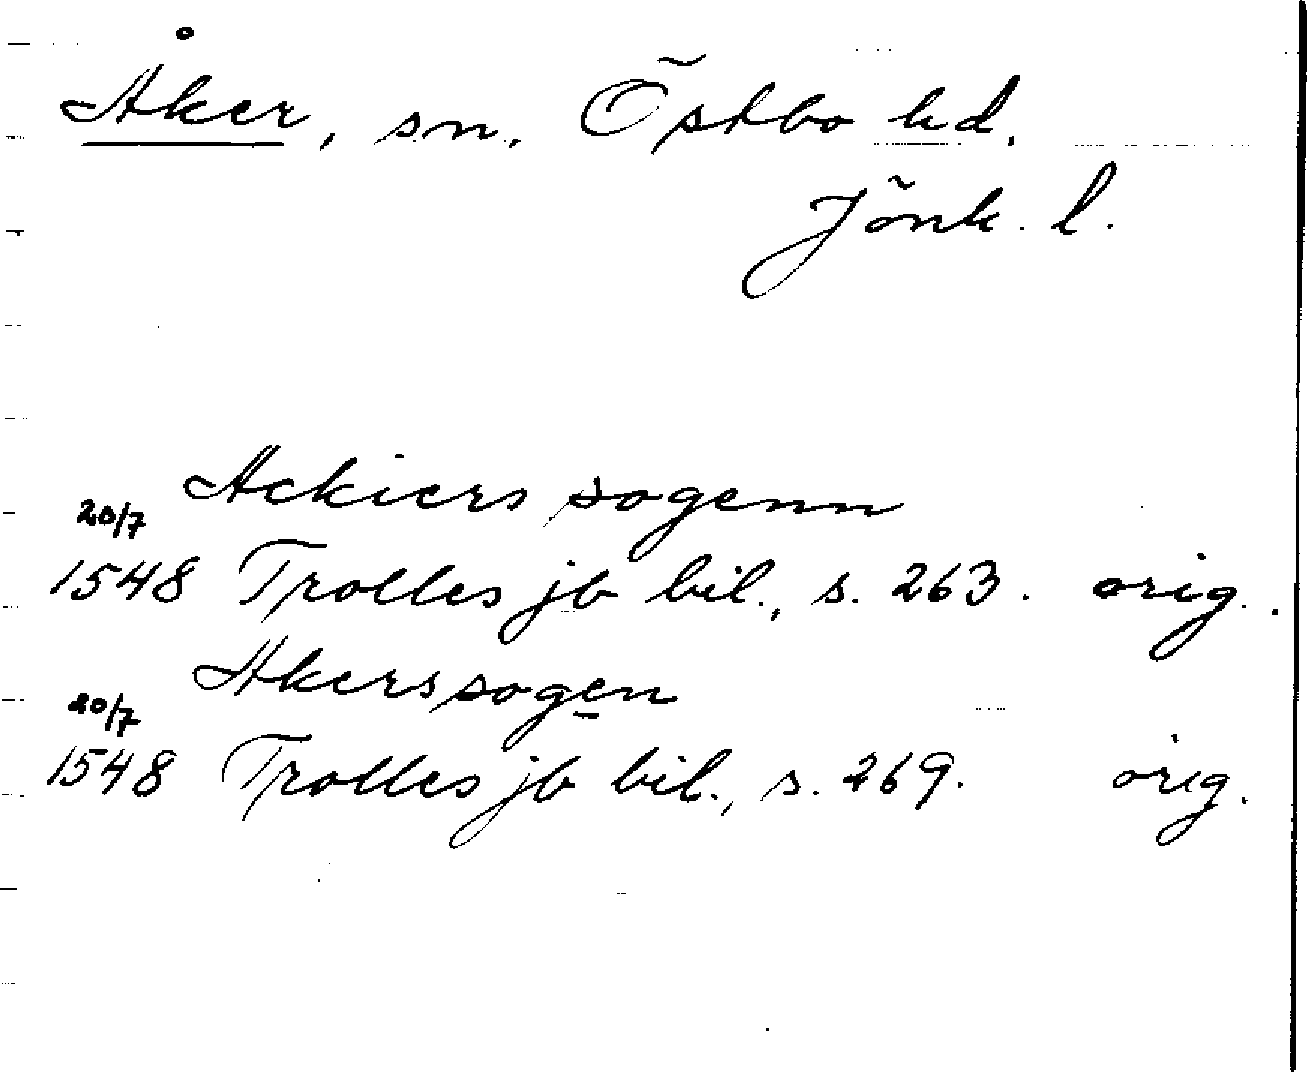 Åker, sn. Östbo hd.
Jönk. l.
Ackiers sogenn
20/7
1548 Trolles jb bil., s. 263. orig.
Akers sogen
20/7
1548 Trolles jb bil., s. 269. orig.